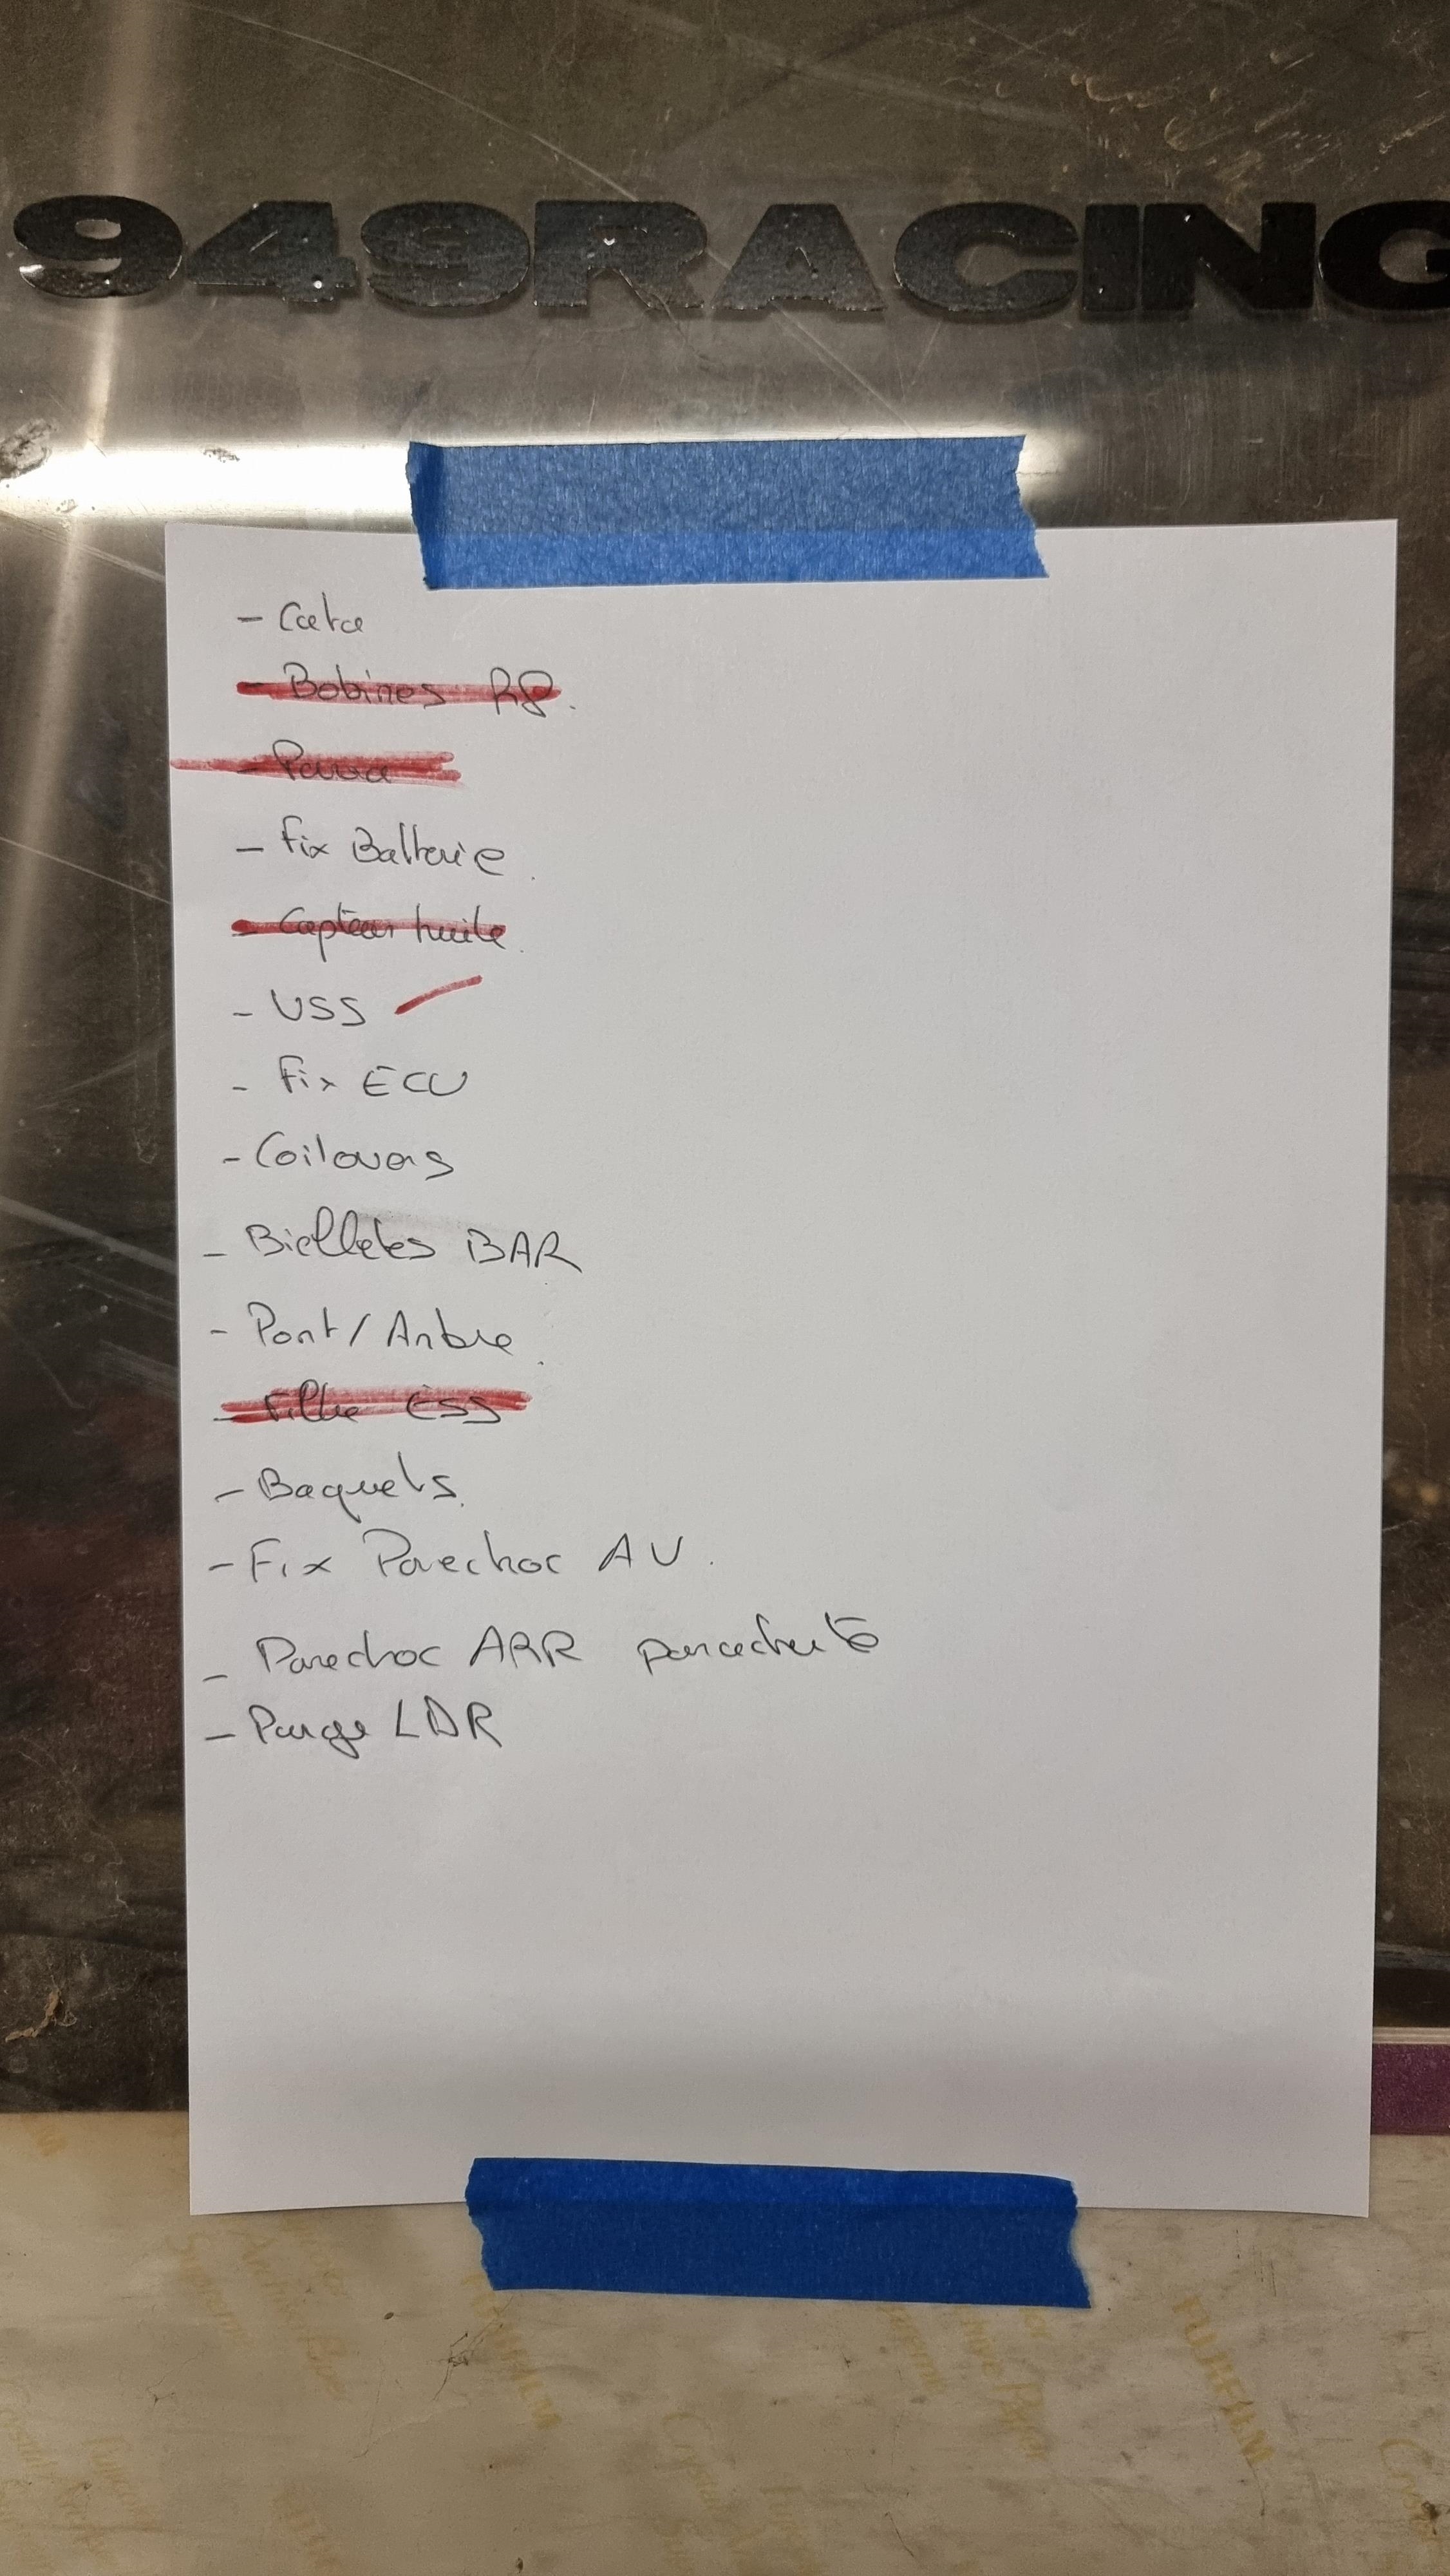 949RACING
- Cata
- Bobines R8.
- Para
- Fix Batterie.
- Capteur huile.
- VSS
- Fix ECU
- Coilovers
- Biellettes BAR
- Pont/Arbre.
- Filtre Ess
- Baquets.
- Fix Parechoc AV.
- Parechoc ARR parachute
- Purge LDR
FUJIFILM